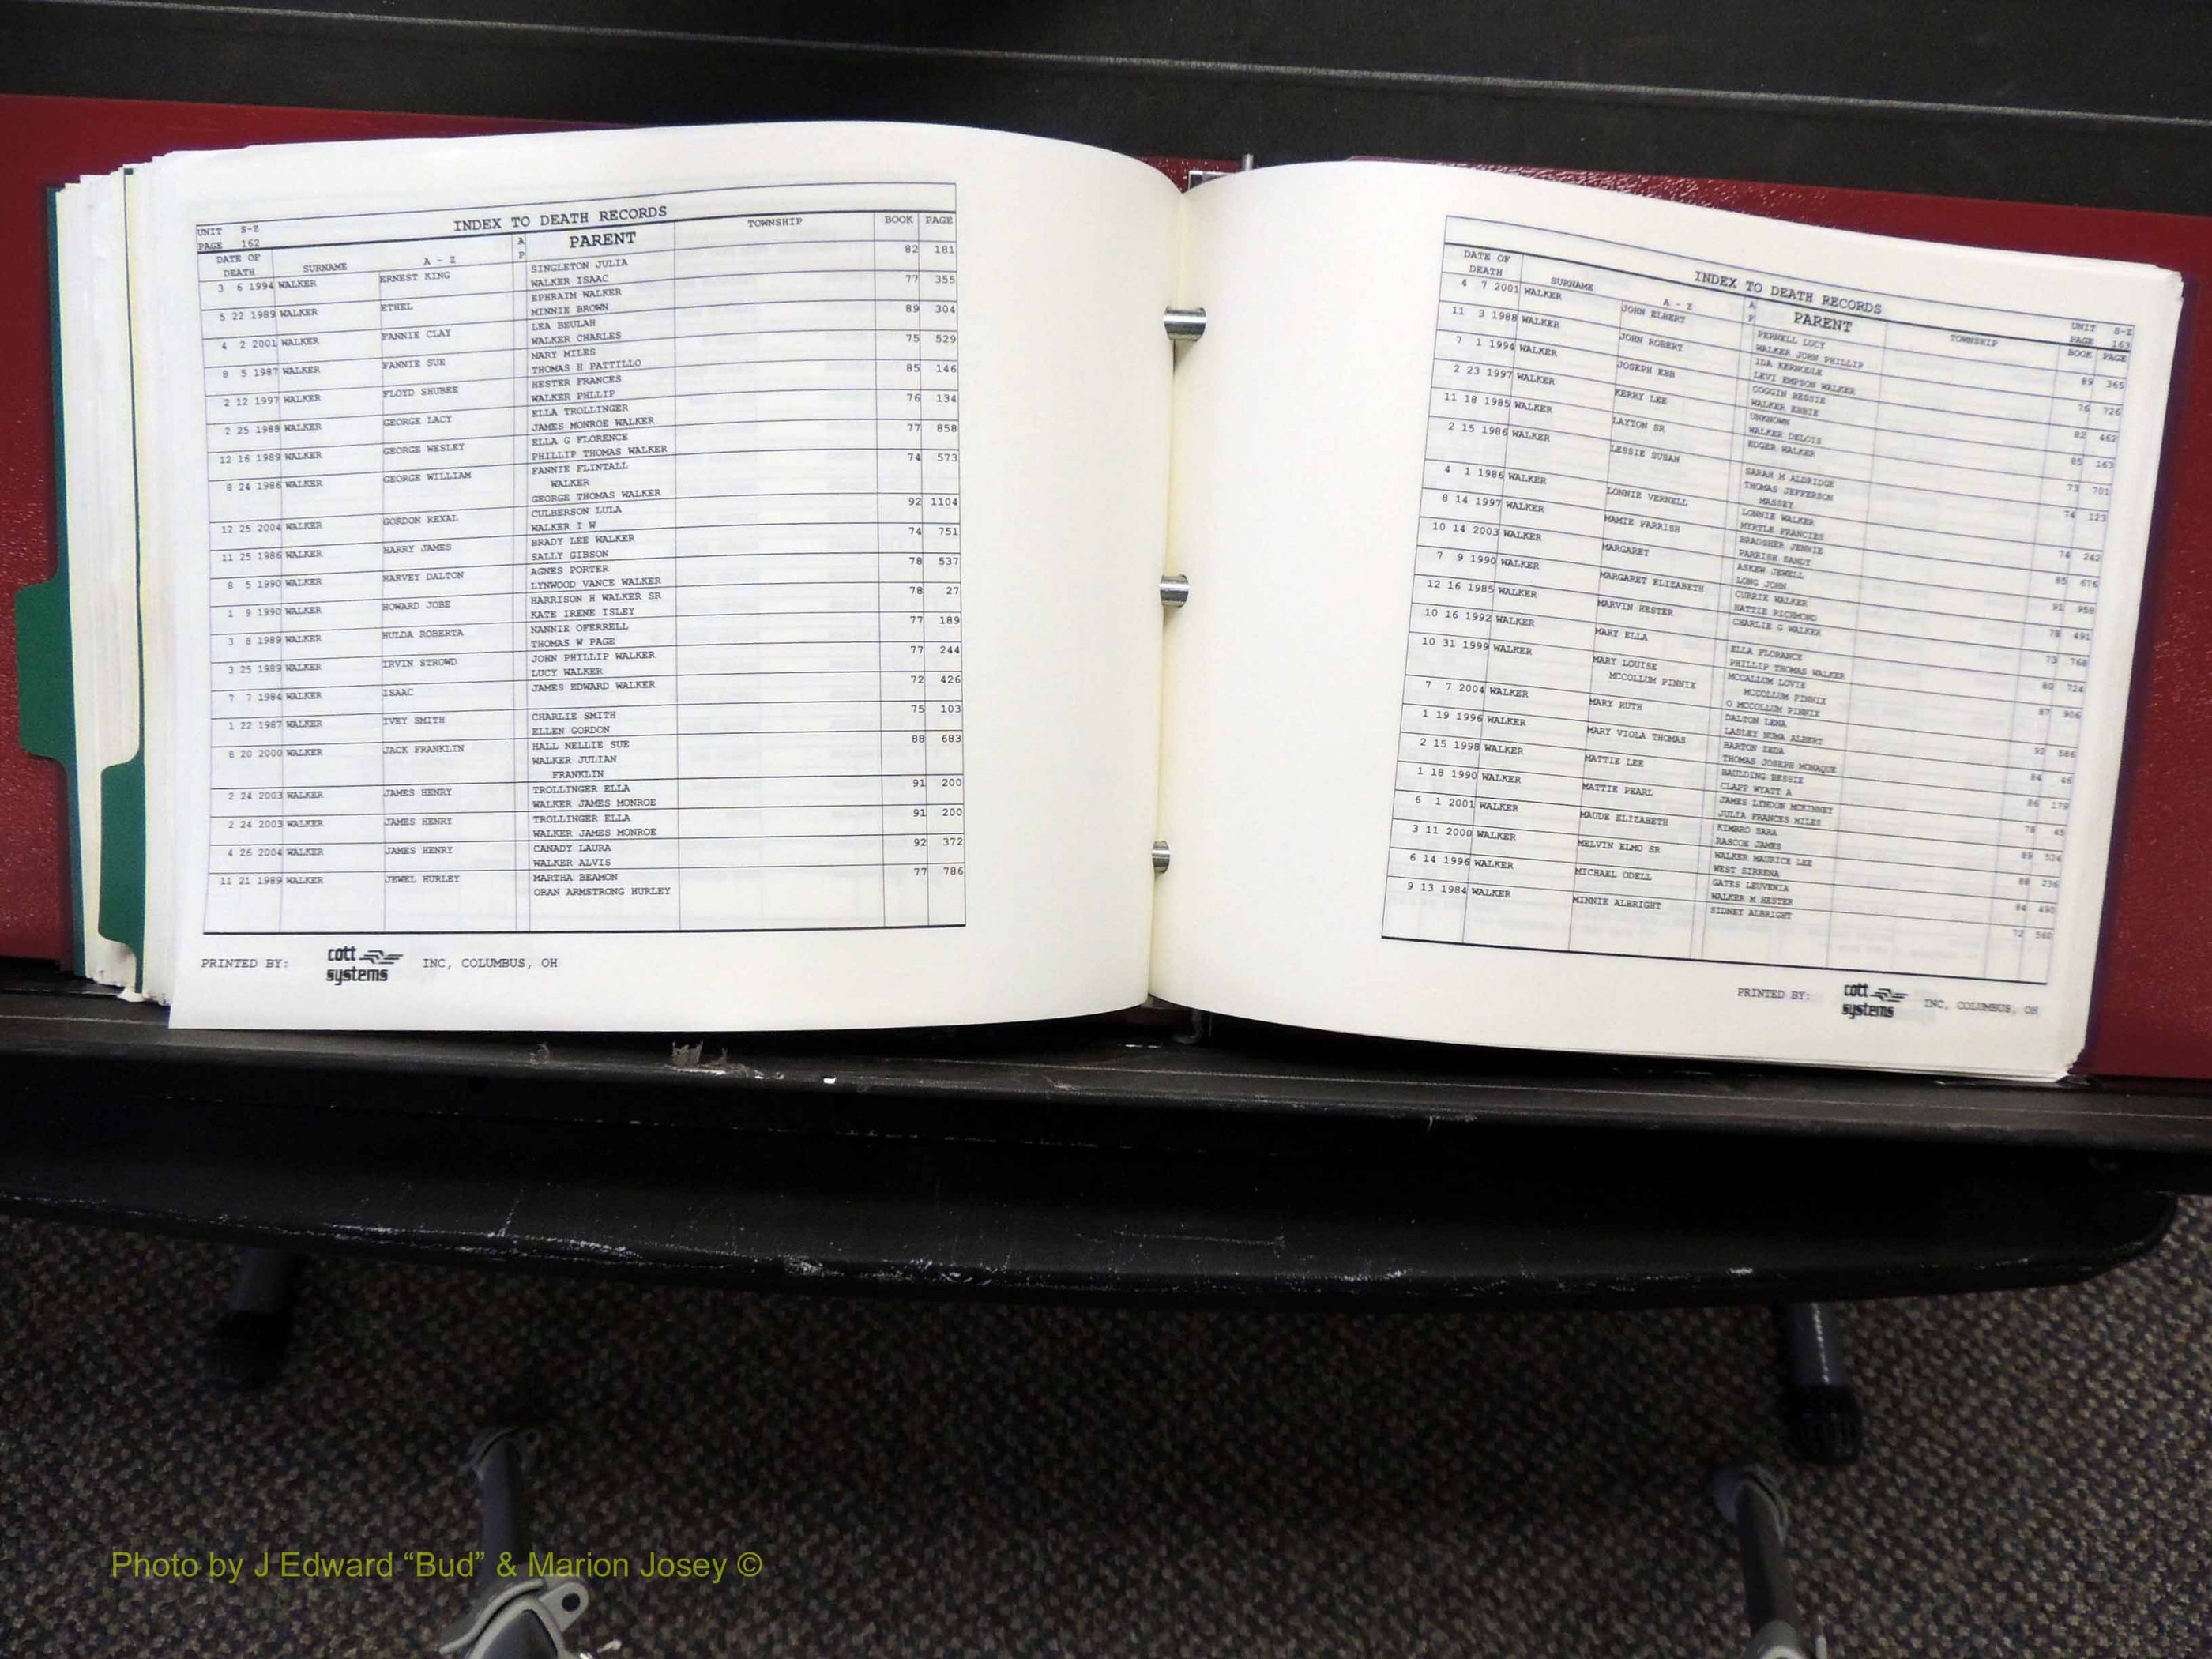 UNIT S-Z
PAGE 162
INDEX TO DEATH RECORDS
DATE OF DEATH SURNAME A - Z A P PARENT TOWNSHIP BOOK PAGE
3 6 1994 WALKER ERNEST KING SINGLETON JULIA 82 181
WALKER ISAAC
5 22 1989 WALKER ETHEL EPHRAIM WALKER 77 355
MINNIE BROWN
4 2 2001 WALKER FANNIE CLAY LEA BEULAH 89 304
WALKER CHARLES
8 5 1987 WALKER FANNIE SUE MARY MILES 75 529
THOMAS H PATTILLO
2 12 1997 WALKER FLOYD SHUBEE HESTER FRANCES 85 146
WALKER PHLLIP
2 25 1988 WALKER GEORGE LACY ELLA TROLLINGER 76 134
JAMES MONROE WALKER
12 16 1989 WALKER GEORGE WESLEY ELLA G FLORENCE 77 858
PHILLIP THOMAS WALKER
8 24 1986 WALKER GEORGE WILLIAM FANNIE FLINTALL 74 573
WALKER
GEORGE THOMAS WALKER
12 25 2004 WALKER GORDON REXAL CULBERSON LULA 92 1104
WALKER I W
11 25 1986 WALKER HARRY JAMES BRADY LEE WALKER 74 751
SALLY GIBSON
8 5 1990 WALKER HARVEY DALTON AGNES PORTER 78 537
LYNWOOD VANCE WALKER
1 9 1990 WALKER HOWARD JOBE HARRISON H WALKER SR 78 27
KATE IRENE ISLEY
3 8 1989 WALKER HULDA ROBERTA NANNIE OFERRELL 77 189
THOMAS W PAGE
3 25 1989 WALKER IRVIN STROWD JOHN PHILLIP WALKER 77 244
LUCY WALKER
7 7 1984 WALKER ISAAC JAMES EDWARD WALKER 72 426
1 22 1987 WALKER IVEY SMITH CHARLIE SMITH 75 103
ELLEN GORDON
8 20 2000 WALKER JACK FRANKLIN HALL NELLIE SUE 88 683
WALKER JULIAN
FRANKLIN
2 24 2003 WALKER JAMES HENRY TROLLINGER ELLA 91 200
WALKER JAMES MONROE
2 24 2003 WALKER JAMES HENRY TROLLINGER ELLA 91 200
WALKER JAMES MONROE
4 26 2004 WALKER JAMES HENRY CANADY LAURA 92 372
WALKER ALVIS
11 21 1989 WALKER JEWEL HURLEY MARTHA BEAMON 77 786
ORAN ARMSTRONG HURLEY
PRINTED BY: cott systems INC, COLUMBUS, OH
INDEX TO DEATH RECORDS
UNIT S-Z
PAGE 163
DATE OF DEATH SURNAME A - Z A P PARENT TOWNSHIP BOOK PAGE
4 7 2001 WALKER JOHN ELBERT PERNELL LUCY 89 365
WALKER JOHN PHILLIP
11 3 1988 WALKER JOHN ROBERT IDA KERNODLE 76 726
LEVI EMPSON WALKER
7 1 1994 WALKER JOSEPH EBB COGGIN BESSIE 82 462
WALKER EBBIE
2 23 1997 WALKER KERRY LEE UNKNOWN 85 163
WALKER DELOIS
11 18 1985 WALKER LAYTON SR EDGER WALKER 73 701
2 15 1986 WALKER LESSIE SUSAN SARAH M ALDRIDGE 74 123
THOMAS JEFFERSON
MASSEY
4 1 1986 WALKER LONNIE VERNELL LONNIE WALKER 74 242
MYRTLE FRANCIES
8 14 1997 WALKER MAMIE PARRISH BRADSHER JENNIE 85 676
PARRISH SANDY
10 14 2003 WALKER MARGARET ASKEW JEWELL 91 958
LONG JOHN
7 9 1990 WALKER MARGARET ELIZABETH CURRIE WALKER 78 491
HATTIE RICHMOND
12 16 1985 WALKER MARVIN HESTER CHARLIE G WALKER 73 768
10 16 1992 WALKER MARY ELLA ELLA FLORANCE 80 724
PHILLIP THOMAS WALKER
10 31 1999 WALKER MARY LOUISE MCCALLUM LOVIE 87 906
MCCOLLUM PINNIX MCCOLLUM PINNIX
O MCCOLLUM PINNIX
7 7 2004 WALKER MARY RUTH DALTON LEMA 92 586
LASLEY NUMA ALBERT
1 19 1996 WALKER MARY VIOLA THOMAS BARTON ZEDA 84 46
THOMAS JOSEPH MONAQUE
2 15 1998 WALKER MATTIE LEE BAULDING BESSIE 86 179
CLAPP WYATT A
1 18 1990 WALKER MATTIE PEARL JAMES LINDON MCKINNEY 78 45
JULIA FRANCES MILES
6 1 2001 WALKER MAUDE ELIZABETH KIMBRO SARA 89 524
RASCOE JAMES
3 11 2000 WALKER MELVIN ELMO SR WALKER MAURICE LEE 88 236
WEST SIRRENA
6 14 1996 WALKER MICHAEL ODELL GATES LEUVENIA 84 490
WALKER M HESTER
9 13 1984 WALKER MINNIE ALBRIGHT SIDNEY ALBRIGHT 72 560
PRINTED BY: cott systems INC, COLUMBUS, OH
Photo by J Edward “Bud” & Marion Josey ©